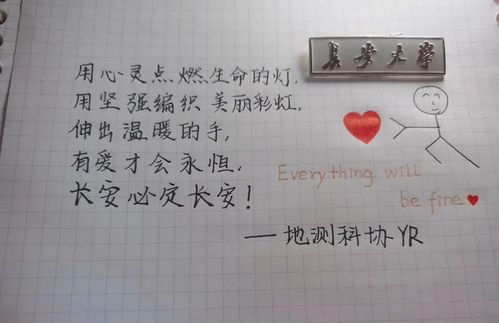 长安大学
用心灵点燃生命的灯,
用坚强编织美丽彩虹,
伸出温暖的手,
有爱才会永恒,
长安必定长安!
Everything will
be fine
——地测科协YR